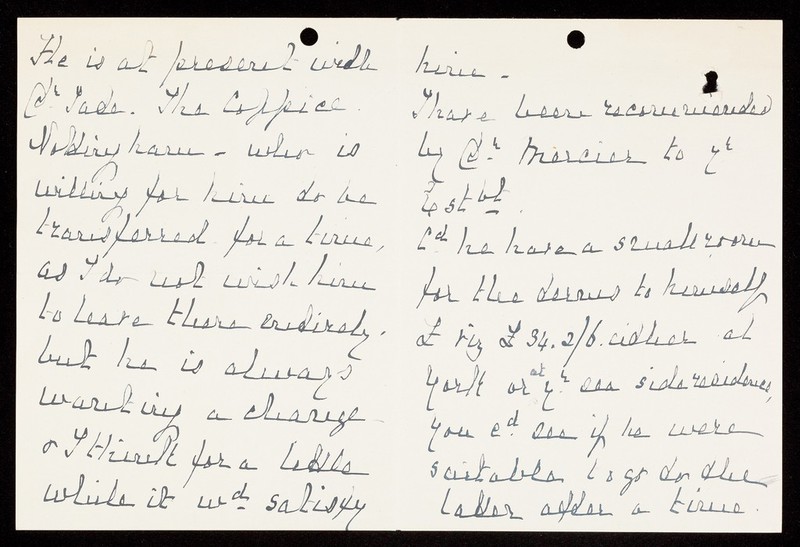 He is at present with
Dr Tate. The Coppice.
Nottingham - who is
willing for him to be
transferred for a time,
as I do not wish him
to leave there entirely.
but he is always
wanting a change
& I think for a little
while it wd. satisfy
him -
I have been recommended
by Dr Mercier to yr
Estbt.
Cd he have a small room
for the terms to himself
£ viz £ 34.2/6. either at
York or at yr sea side residence,
you cd see if he were
suitable to go to the
latter after a time.